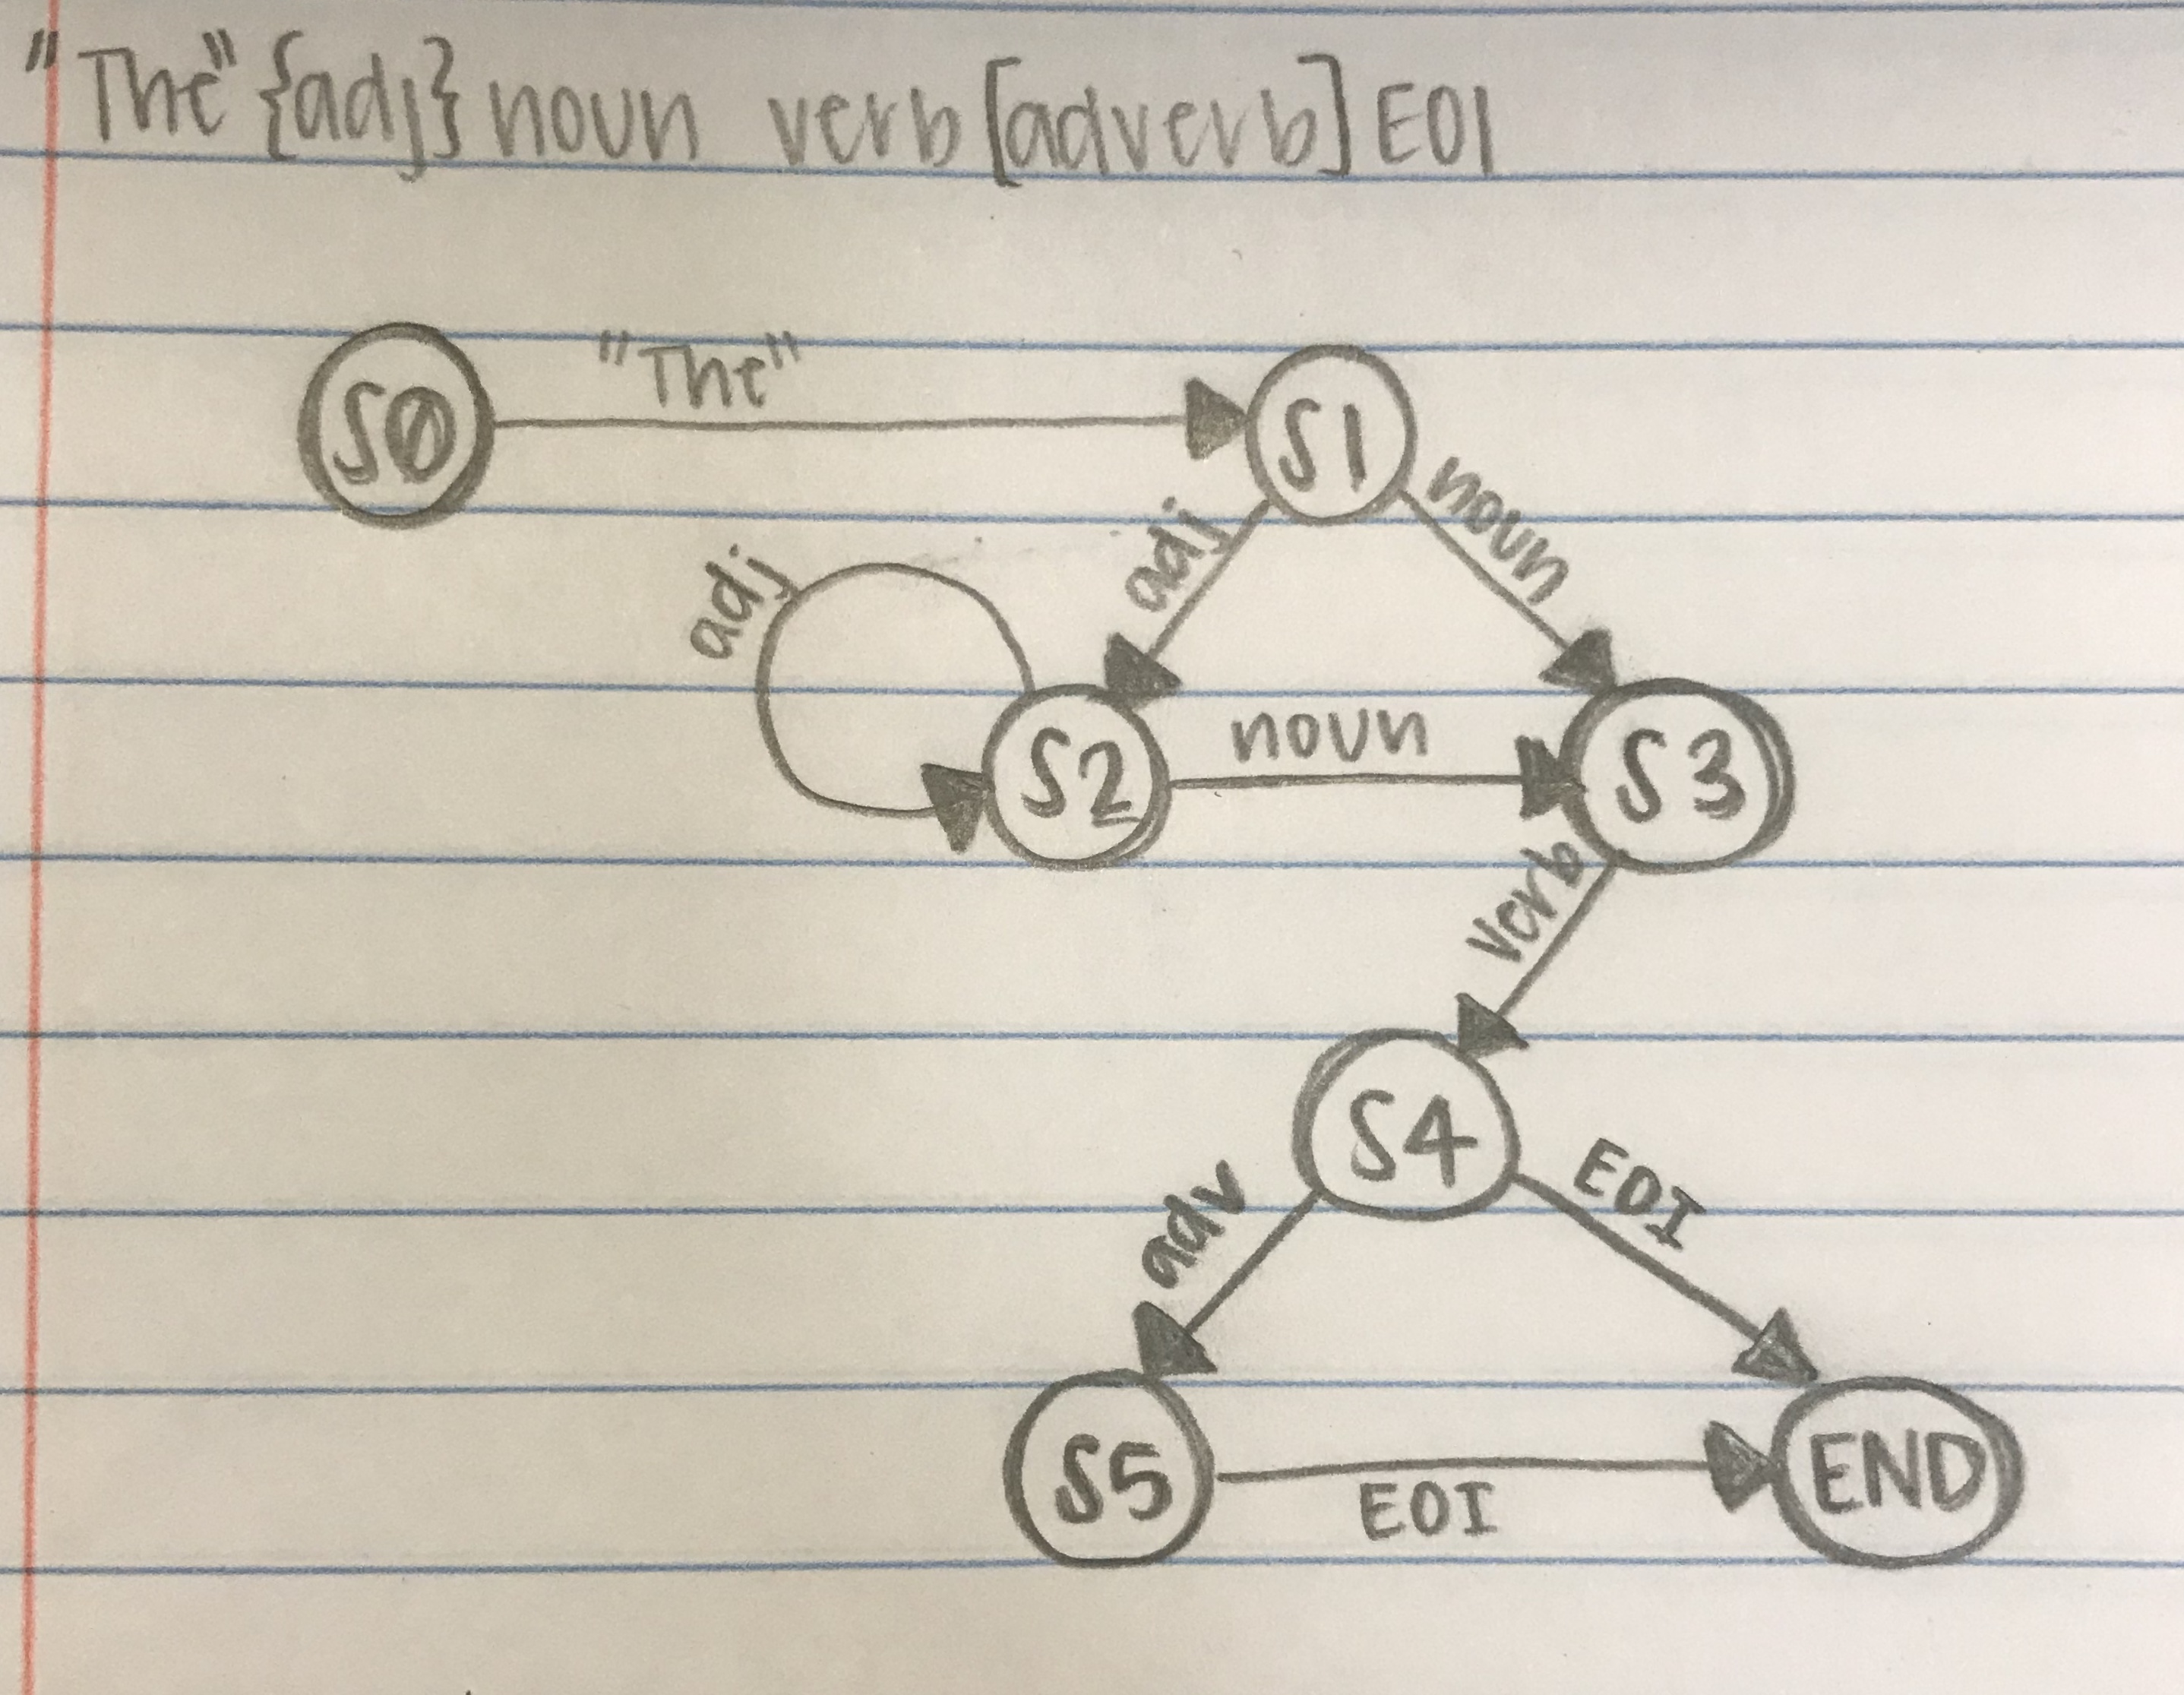 "The" {adj} noun verb [adverb] EOI
S0
"The"
S1
adj
noun
adj
S2
noun
S3
verb
S4
adv
EOI
S5
EOI
END